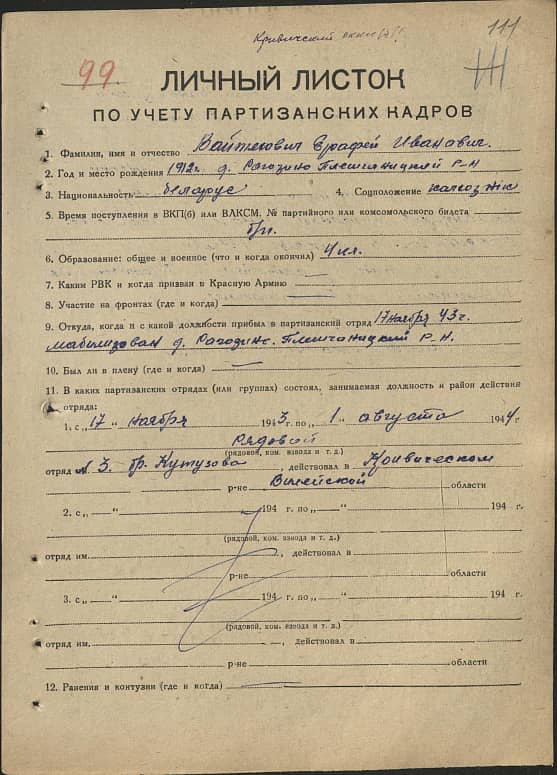 Кривичский
111
99
ЛИЧНЫЙ ЛИСТОК
ПО УЧЕТУ ПАРТИЗАНСКИХ КАДРОВ
1. Фамилия, имя и отчество Вайтехович Ерафей Иванович.
2. Год и место рождения 1912г. д. Рагозино Плещеницкий р-н
3. Национальность беларус 4. Соцположение колхозник
5. Время поступления в ВКП(б) или ВЛКСМ, № партийного или комсомольского билета
б/п.
6. Образование: общее и военное (что и когда окончил) 4 кл.
7. Каким РВК и когда призван в Красную Армию
8. Участие на фронтах (где и когда)
9. Откуда, когда и с какой должности прибыл в партизанский отряд 17 ноября 43 г.
мабилизован д. Рагозино Плещаницкий р-н.
10. Был ли в плену (где и когда)
11. В каких партизанских отрядах (или группах) состоял, занимаемая должность и район действия
отряда:
1. с „17 “ ноября 1943 г. по „ 1 “ августа 1944 г.
рядовой
(рядовой, ком. взвода и т. д.)
отряд N 3. бр. Кутузова, действовал в Кривическом
р-не Вилейской области
2. с „ “ 194 г. по „ “ 194 г.
(рядовой, ком. взвода и т. д.)
отряд им. , действовал в
р-не области
3. с „ “ 194 г. по „ “ 194 г.
(рядовой, ком. взвода и т. д.)
отряд им. , действовал в
р-не области
12. Ранения и контузии (где и когда)